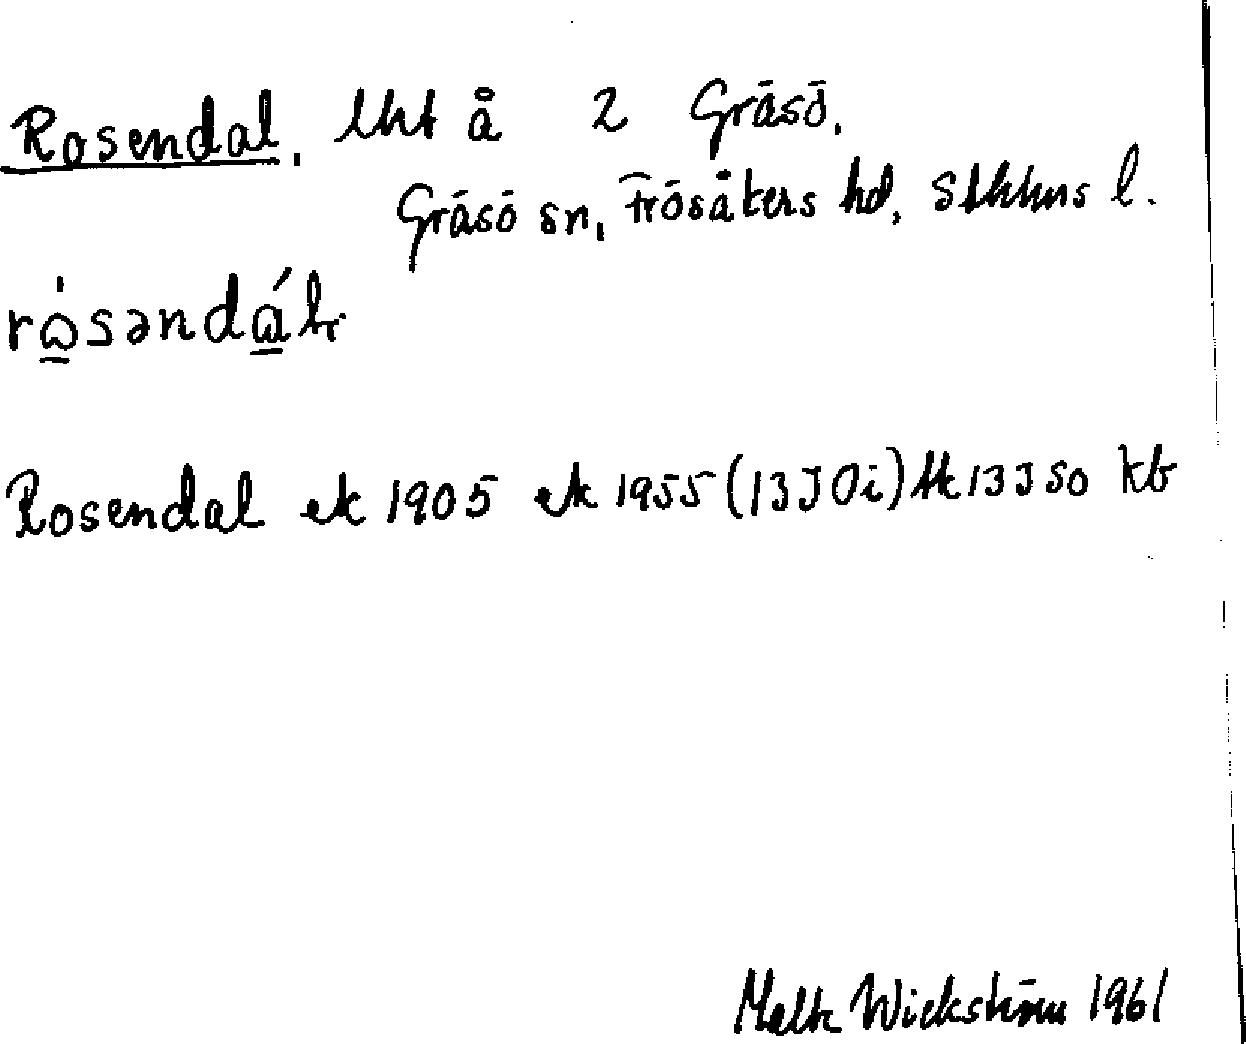 Rosendal, lht å 2 Gräsö,
Gräsö sn, Frösåkers hd, Sthlms l.
Rosendal ek 1905 ek 1955 (13J0i) 13J SO
Wickström 1961